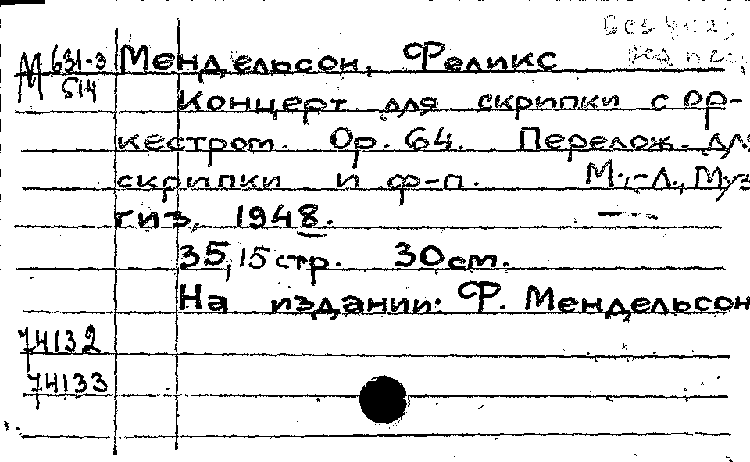 М 631-3 Мендельсон, Феликс
514 Концерт для скрипки с ор-
кестром. Op. 64. Перелож. для
скрипки и ф-п. М.,-Л., Муз
гиз, 1948.
35, 15 стр. 30 см.
На издании: Ф. Мендельсон
74132
74133